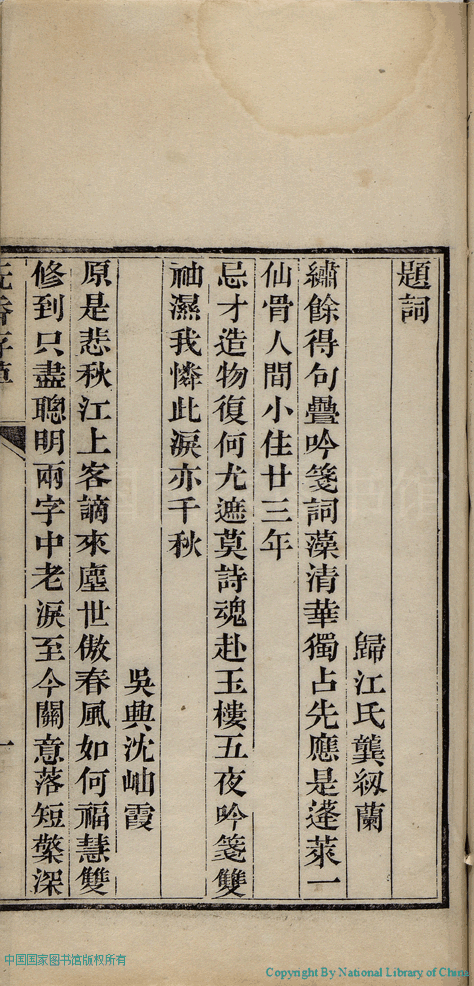 題詞
歸江氏龔紉蘭
繡餘得句疊吟箋詞藻清華獨占先應是蓬萊一
仙骨人間小住廿三年
忌才造物復何尤遮莫詩魂赴玉樓五夜吟箋雙
袖濕我憐此淚亦千秋
吳興沈岫霞
原是悲秋江上客謫來塵世傲春風如何福慧雙
修到只盡聰明兩字中老淚至今關意落短檠深
一
中国国家图书馆版权所有
Copyright By National Library of China